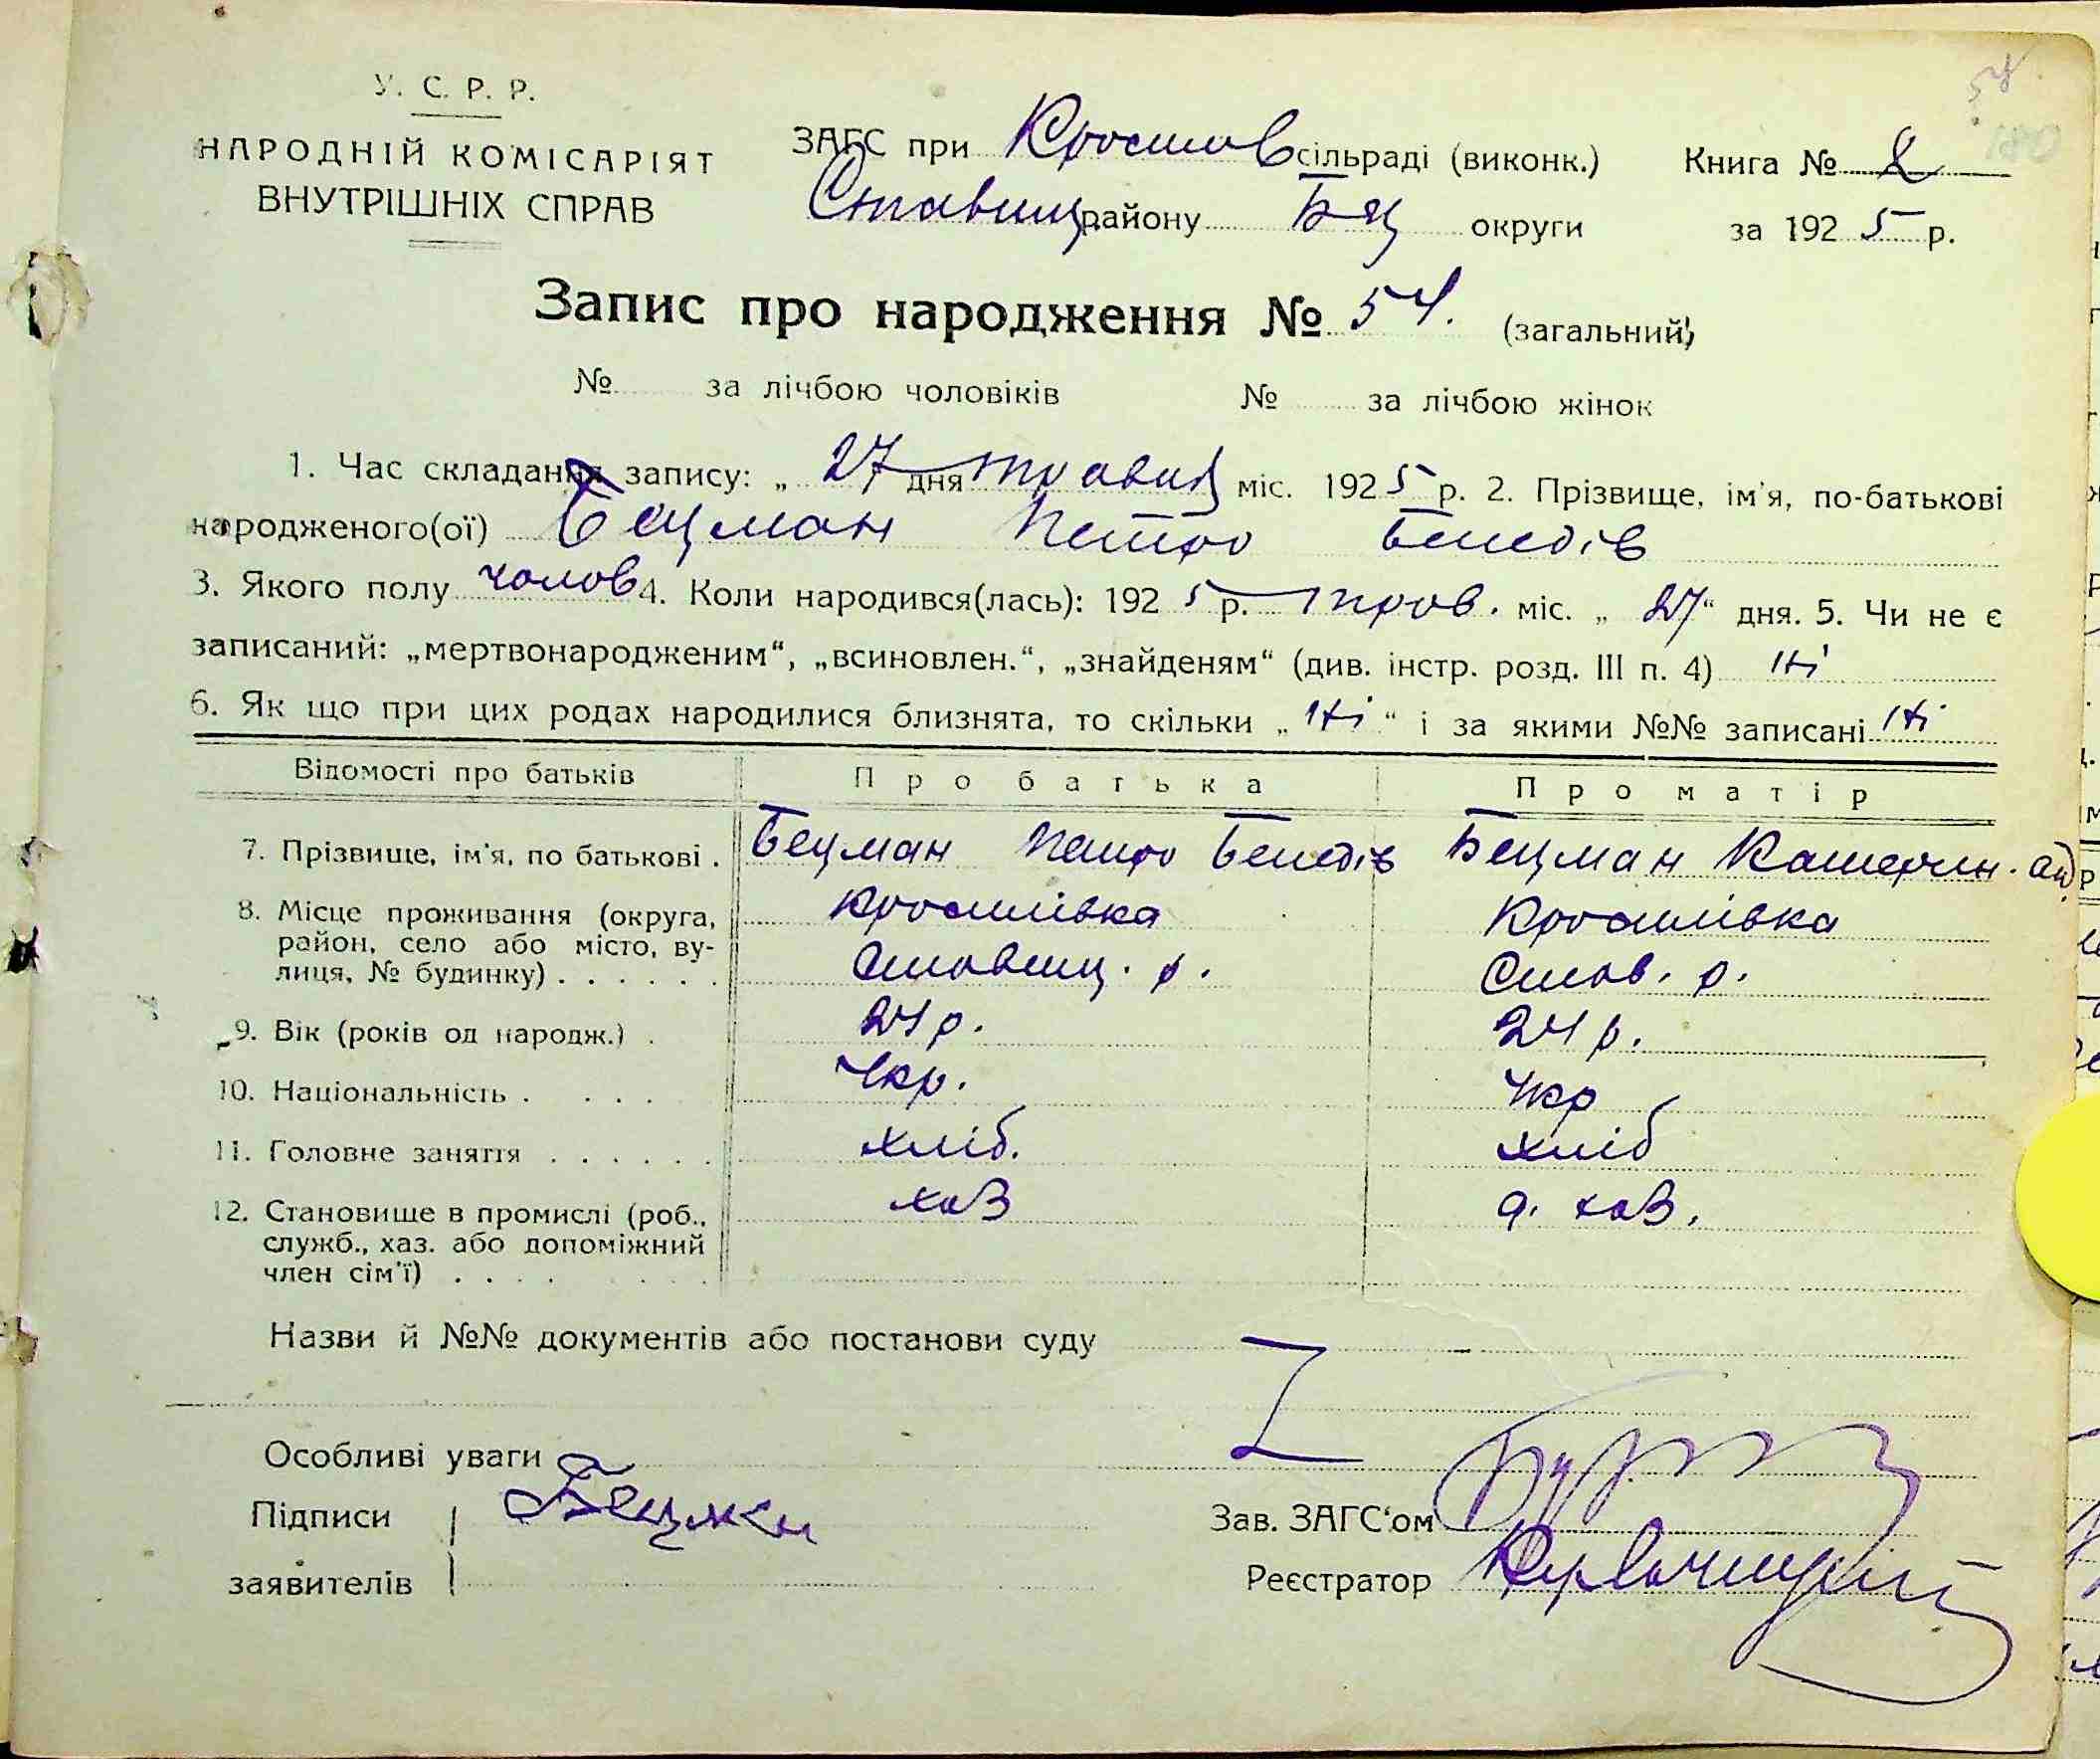 У. С. Р. Р.
НАРОДНІЙ КОМІСАРІЯТ
ВНУТРІШНІХ СПРАВ
ЗАГС при Красилів сільраді (виконк.) Книга №
Ставищ. району Бц округи за 1925 р.
54
180
Запис про народження № 54. (загальний)
№ за лічбою чоловіків № за лічбою жінок
1. Час складання запису: „ 27 дня травня міс. 1925 р. 2. Прізвище, ім'я, по-батькові
народженого(ої) Бецман Петро Бенедів
3. Якого полу чолов 4. Коли народився(лась): 1925 р. трав. міс. „ 27 “ дня. 5. Чи не є
записаний: „мертвонародженим“, „всиновлен.“, „знайденям“ (див. інстр. розд. III п. 4) ні
6. Як що при цих родах народилися близнята, то скільки „ ні “ і за якими №№ записані ні
Відомості про батьків Про батька Про матір
7. Прізвище, ім'я, по батькові . Бецман Петро Бенедів Бецман Катерин.
8. Місце проживання (округа, Красилівка Красилівка
район, село або місто, ву-
лиця, № будинку) . . . . . . Ставищ. р. Став. р.
9. Вік (років од народж.) . 24 р. 24 р.
10. Національність . . . . Укр. Укр
11. Головне заняття . . . . . . хліб. хліб
12. Становище в промислі (роб., хаз д. хаз.
служб., хаз. або допоміжний
член сім'ї) . . . .
Назви й №№ документів або постанови суду
Особливі уваги
Підписи Бецман Зав. ЗАГС'ом
заявителів Реєстратор